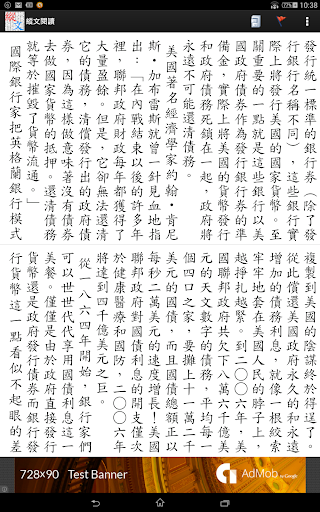 10:38
縱文
縱文閱讀
發行統一標準的銀行券（除了發
行銀行名稱不同），這些銀行實
際上將發行美國的國家貨幣。至
關重要的一點就是這些銀行以美
國政府債券作為發行銀行券的準
備金，實際上將美國的貨幣發行
和政府債務死鎖在一起，政府將
永遠不可能還清債務。
美國著名經濟學家約翰·肯尼
斯·加布雷斯就曾一針見血地指
出：「在內戰結束以後的許多年
裡，聯邦政府財政每年都獲得了
大量盈餘。但是，它卻無法還清
它的債務，清償發行出的政府債
券，因為這樣做意味著沒有債券
去做國家貨幣的抵押。還清債務
就等於摧毀了貨幣流通。」
國際銀行家把英格蘭銀行模式
複製到美國的陰謀終於得逞了。
從此償還美國政府永久的和永遠
增加的債務利息，就像一根絞索
牢牢地套在美國人民的脖子上，
越掙扎越緊。到二○○六年，美
國聯邦政府共欠下八萬六千億美
元的天文數字的債務，平均每一
個四口之家，要攤上十一萬二千
美元的國債，而且國債總額正以
每秒二萬美元的速度增長！美國
聯邦政府對國債利息的開支僅次
於健康醫療和國防，二○○六年
將達到四千億美元之巨。
從一八六四年開始，銀行家們
可以世世代代享用國債利息這一
美餐。僅僅是由於政府直接發行
貨幣還是政府發行債券而銀行發
行貨幣這一點看似不起眼的差
728×90 Test Banner
AdMob by Google